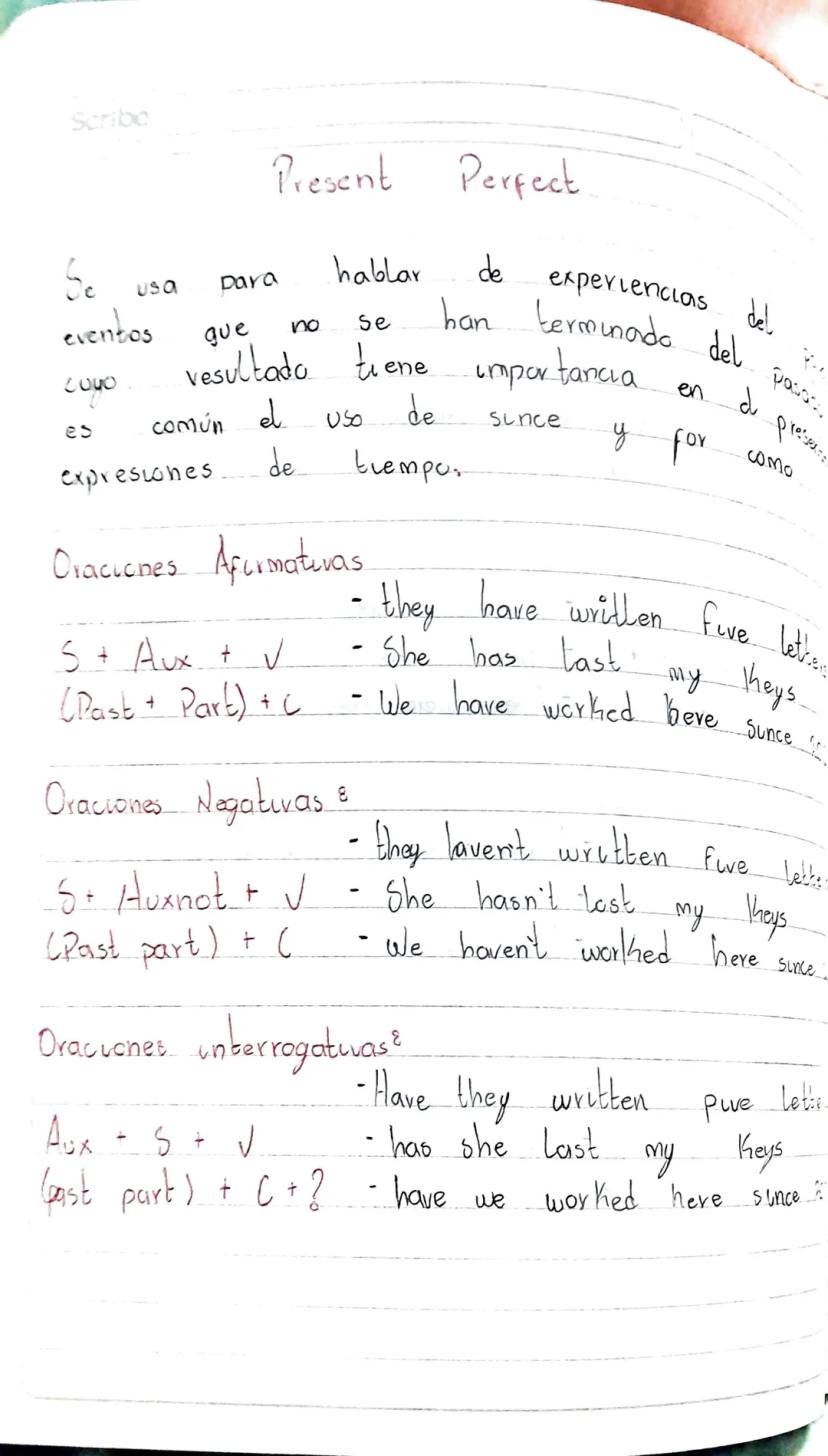 Scribe
Present Perfect
Se usa para hablar de experiencias del
eventos que no se han terminado del pasado
cuyo resultado tiene importancia en el presente
es común el uso de since y for como
expresiones de tiempo.
Oraciones Afirmativas
- they have written five letters
S + Aux + V - She has last my Keys
(Past + Part) + C - We have worked here since
Oraciones Negativas :
- they laven't written five lette
S + Auxnot + V - She hasn't last my Keys
(Past part) + C - We haven't worked here since
Oraciones interrogativas :
- Have they written pive lette
Aux + S + V - has she last my Keys
(past part) + C + ? - have we worked here since